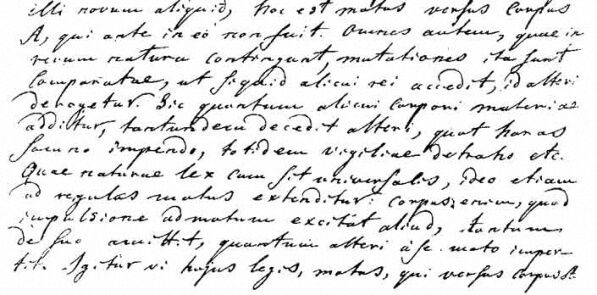 illi novum aliquid, hoc est motus versus corpus
A, qui ante in eo non fuit. Omnes autem, quae in
rerum natura contingunt, mutationes ita sunt
comparatae, ut siquid alicui rei accedit, id alteri
derogetur. Sic quantum alicui corpori materiae
additur, tantundem decedit alteri, quot horas
somno impendo, totidem vigiliae detraho etc.
Quae naturae lex cum sit universalis, ideo etiam
ad regulas motus extenditur: corpus enim, quod
impulsione ad motum excitat aliud, tantum
de suo amittit, quantum alteri a se moto imper-
tit. Igitur vi hujus legis, motus, qui versus corpus